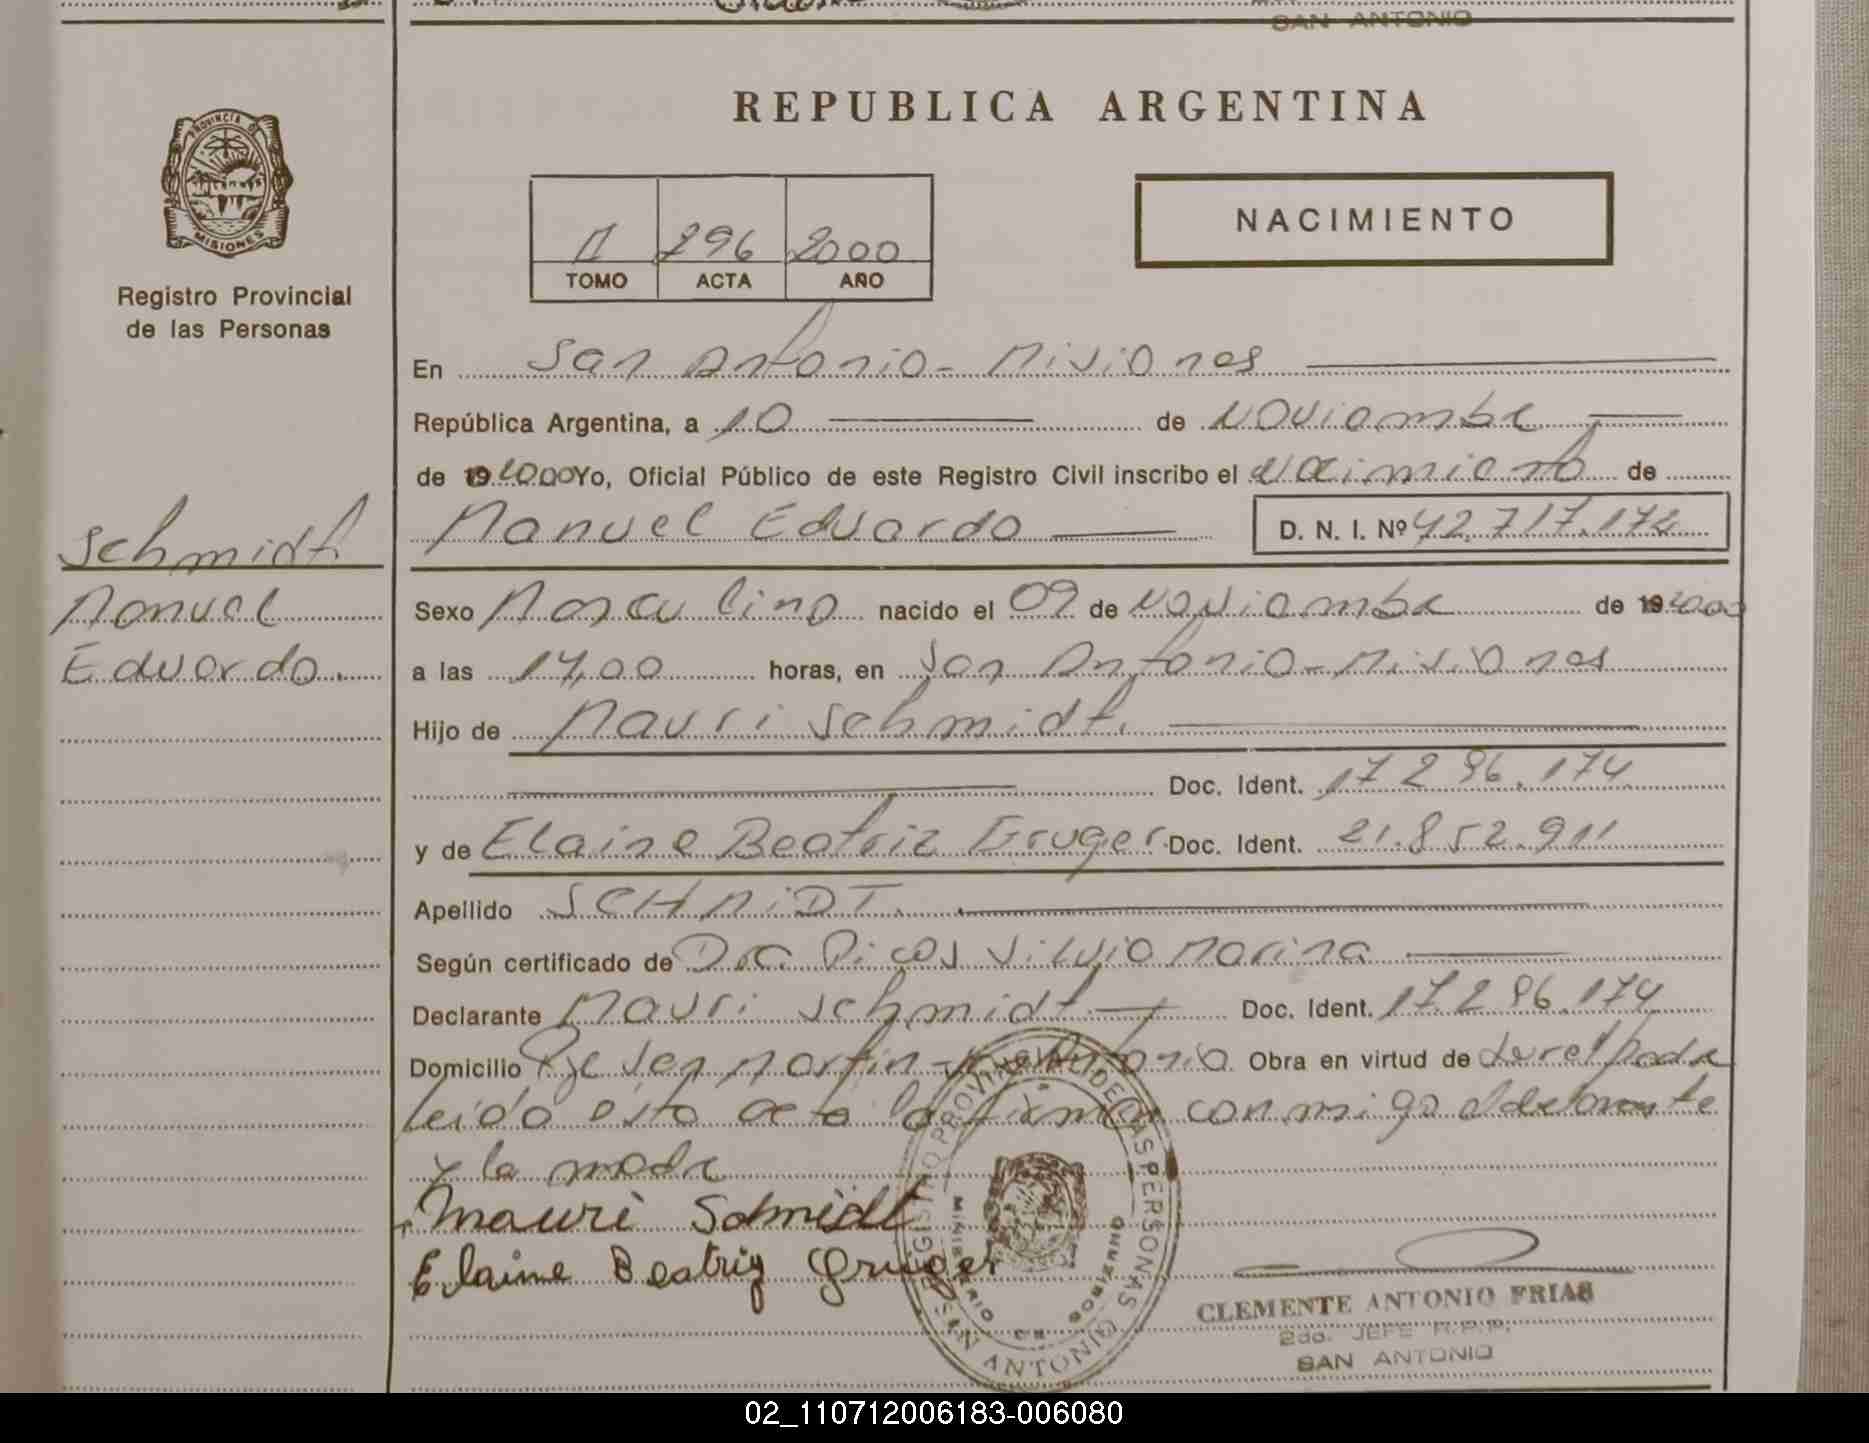 SAN ANTONIO
REPUBLICA ARGENTINA
PROVINCIA DE
MISIONES
Registro Provincial
de las Personas
NACIMIENTO
II 296 2000
TOMO ACTA AÑO
En San Antonio - Misiones
República Argentina, a 10 de Noviembre
de 19 2000 Yo, Oficial Público de este Registro Civil inscribo el Nacimiento de
Manuel Eduardo D. N. I. Nº 42.717.172
Schmidt
Manuel
Eduardo.
Sexo Masculino nacido el 09 de Noviembre de 19 2000
a las 17,00 horas, en San Antonio - Misiones
Hijo de Mauri Schmidt.
Doc. Ident. 17.296.174
y de Elaine Beatriz Gruger Doc. Ident. 21.852.911
Apellido SCHMIDT.
Según certificado de Dra. Silvia Marina
Declarante Mauri Schmidt Doc. Ident. 17.296.174
Domicilio Pje San Martin - San Antonio Obra en virtud de
leída esta acta la firman conmigo el declarante
y la madre
Mauri Schmidt
Elaine Beatriz Gruger
REGISTRO PROVINCIAL DE LAS PERSONAS
MINISTERIO DE GOBIERNO
SAN ANTONIO
CLEMENTE ANTONIO FRIAS
2do. JEFE R.P.P.
SAN ANTONIO
02_110712006183-006080